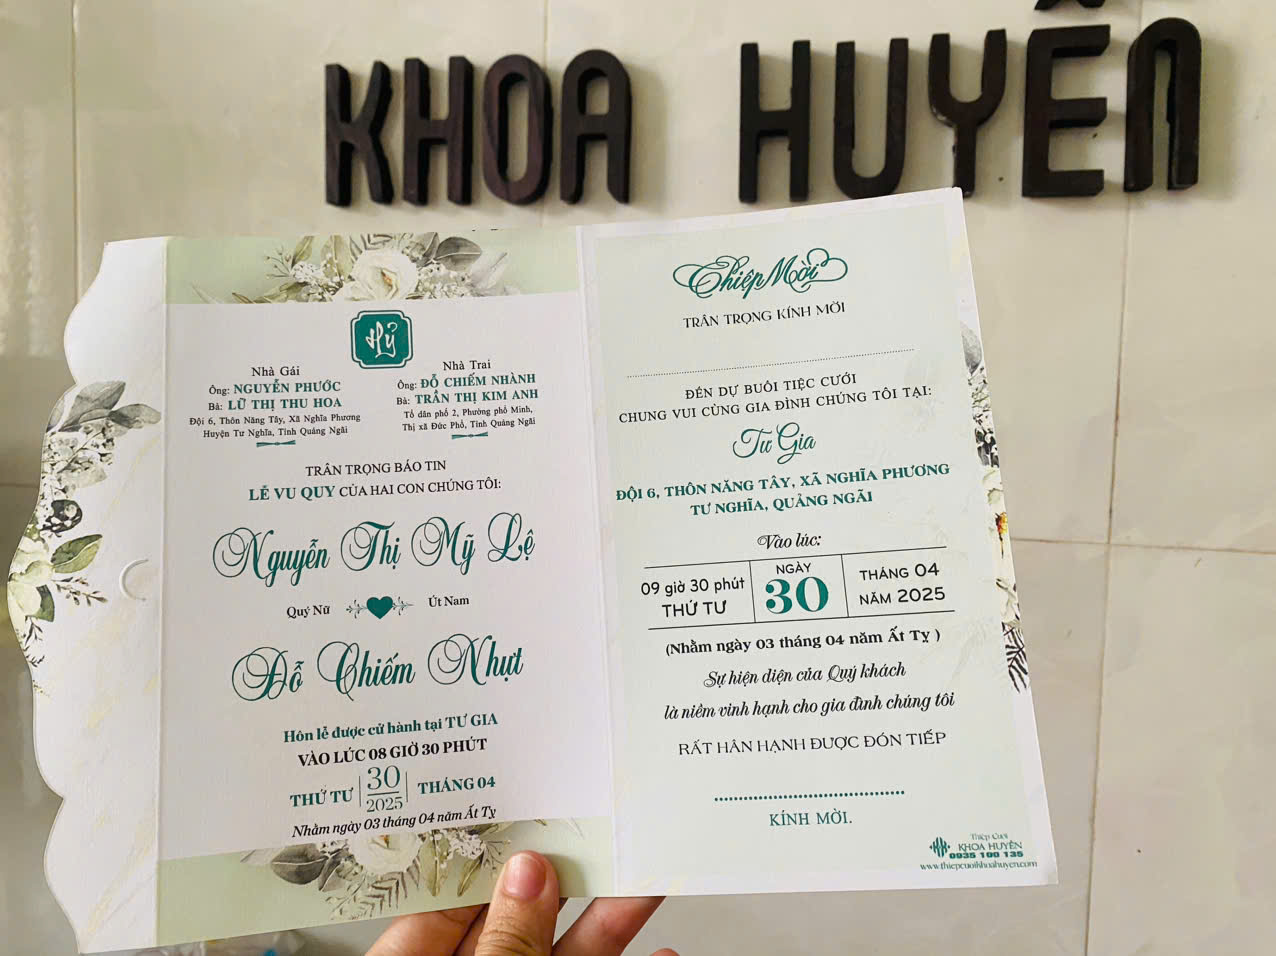 KHOA HUYỀN
Hỷ
Nhà Gái
Ông: NGUYỄN PHƯỚC
Bà: LỮ THỊ THU HOA
Đội 6, Thôn Năng Tây, Xã Nghĩa Phương
Huyện Tư Nghĩa, Tỉnh Quảng Ngãi
Nhà Trai
Ông: ĐỖ CHIẾM NHÀNH
Bà: TRẦN THỊ KIM ANH
Tổ dân phố 2, Phường phổ Minh,
Thị xã Đức Phổ, Tỉnh Quảng Ngãi
TRÂN TRỌNG BÁO TIN
LỄ VU QUY CỦA HAI CON CHÚNG TÔI:
Nguyễn Thị Mỹ Lệ
Quý Nữ Út Nam
Đỗ Chiếm Nhựt
Hôn lễ được cử hành tại TƯ GIA
VÀO LÚC 08 GIỜ 30 PHÚT
THỨ TƯ 30 THÁNG 04
2025
Nhằm ngày 03 tháng 04 năm Ất Tỵ
Thiệp Mời
TRÂN TRỌNG KÍNH MỜI
ĐẾN DỰ BUỔI TIỆC CƯỚI
CHUNG VUI CÙNG GIA ĐÌNH CHÚNG TÔI TẠI:
Tư Gia
ĐỘI 6, THÔN NĂNG TÂY, XÃ NGHĨA PHƯƠNG
TƯ NGHĨA, QUẢNG NGÃI
Vào lúc:
09 giờ 30 phút
THỨ TƯ
NGÀY
30
THÁNG 04
NĂM 2025
(Nhằm ngày 03 tháng 04 năm Ất Tỵ )
Sự hiện diện của Quý khách
là niềm vinh hạnh cho gia đình chúng tôi
RẤT HÂN HẠNH ĐƯỢC ĐÓN TIẾP
KÍNH MỜI.
Thiệp Cưới
KHOA HUYỀN
0935 100 135
www.thiepcuoikhoahuyen.com